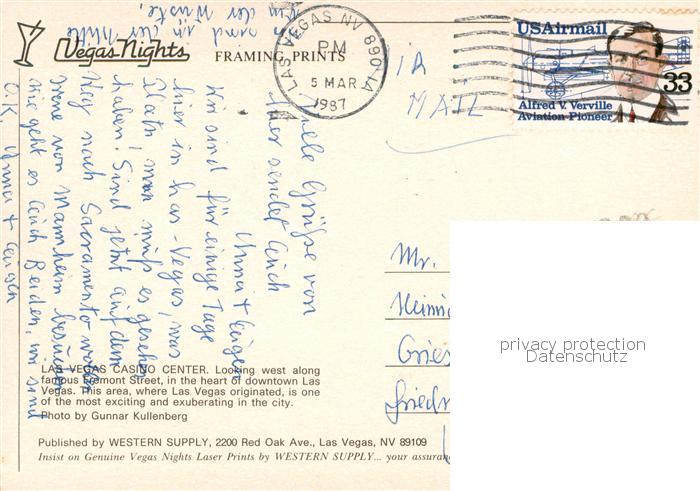 Vegas Nights
FRAMING PRINTS
LAS VEGAS NV 890-1A
PM
5 MAR
1987
USAirmail
33
Alfred V. Verville
Aviation Pioneer
AIR
MAIL
Viele Grüße von
hier sendet Euch
Anna + Eugen
Wir sind für einige Tage
hier in Las-Vegas, was
Platz! man muß es gesehen
haben! Sind jetzt auf dem
Weg nach Sacramento wollen
Irene von Mannheim besuchen
Wie geht es Euch Beiden, wir sind
O.K. Anna + Eugen
in der Mitte
in der Wüste,
Mr.
Heinri
Gries
Friedr
privacy protection
Datenschutz
LAS VEGAS CASINO CENTER. Looking west along
famous Fremont Street, in the heart of downtown Las
Vegas. This area, where Las Vegas originated, is one
of the most exciting and exuberating in the city.
Photo by Gunnar Kullenberg
Published by WESTERN SUPPLY, 2200 Red Oak Ave., Las Vegas, NV 89109
Insist on Genuine Vegas Nights Laser Prints by WESTERN SUPPLY... your assuran